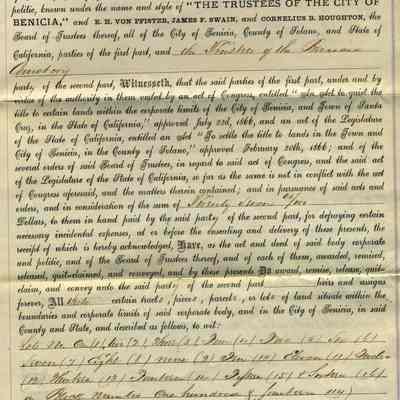 politic, known under the name and style of "THE TRUSTEES OF THE CITY OF
BENICIA," and E. H. VON PFISTER, JAMES F. SWAIN, and CORNELIUS D. HOUGHTON, the
Board of Trustees thereof, all of the City of Benicia, County of Solano, and State of
California, parties of the first part, and the Trustees of the
Cemetery
party of the second part, Witnesseth, that the said parties of the first part, under and by
virtue of the authority in them vested by an act of Congress, entitled "An Act to quiet the
title to certain lands within the corporate limits of the City of Benicia, and Town of Santa
Cruz, in the State of California," approved July 23d, 1866, and an act of the Legislature
of the State of California, entitled an Act "To settle the title to lands in the Town and
City of Benicia, in the County of Solano," approved February 20th, 1866; and of the
several orders of said Board of Trustees, in regard to said act of Congress, and the said act
of the Legislature of the State of California, so far as the same is not in conflict with the act
of Congress aforesaid, and the matters therein contained; and in pursuance of said acts and
orders, and in consideration of the sum of Seven /100
Dollars, to them in hand paid by the said party of the second part, for defraying certain
necessary incidental expenses, at or before the ensealing and delivery of these presents, the
receipt of which is hereby acknowledged, Have, as the act and deed of said body corporate
and politic, and of the Board of Trustees thereof, and of each of them, awarded, remised,
released, quit-claimed, and conveyed, and by these presents Do award, remise, release, quit-
claim, and convey unto the said party of the second part heirs and assigns
forever, All those certain tracts, pieces, parcels, or lots of land situate within the
boundaries and corporate limits of said corporate body, and in the City of Benicia, in said
County and State, and described as follows, to wit:
Lots No One (1) two (2) Three (3) Four (4) Five (5) Six (6)
Seven (7) Eight (8) nine (9) Ten (10) Eleven (11) Twelve
(12) Thirteen (13) Fourteen (14) Fifteen (15) & Sixteen (16)
Block Number One hundred & fourteen 114)